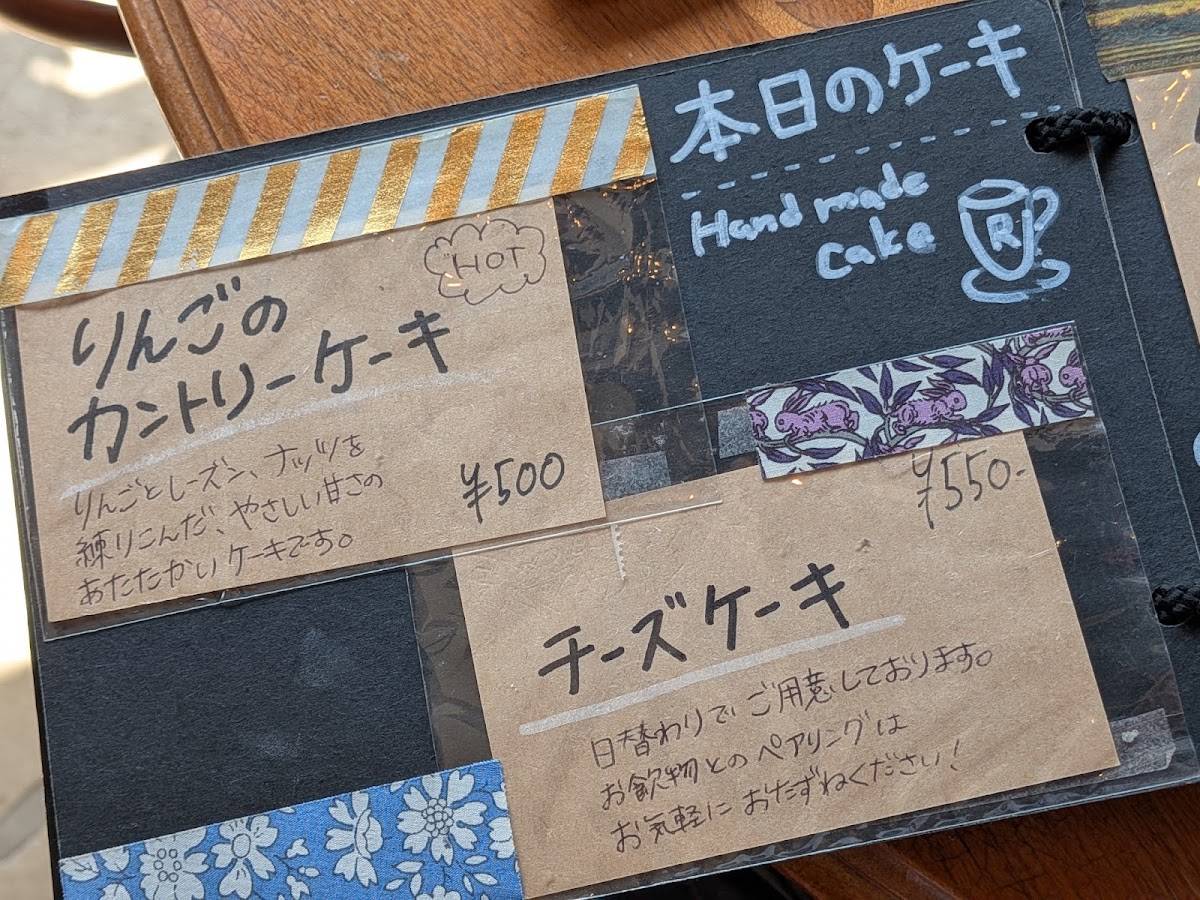 本日のケーキ
Handmade
cake
R
HOT
りんごの
カントリーケーキ
りんごとレーズン、ナッツを
練りこんだ、やさしい甘さの
あたたかいケーキです。
¥500
¥550-
チーズケーキ
日替わりでご用意しております。
お飲物とのペアリングは
お気軽におたずねください!